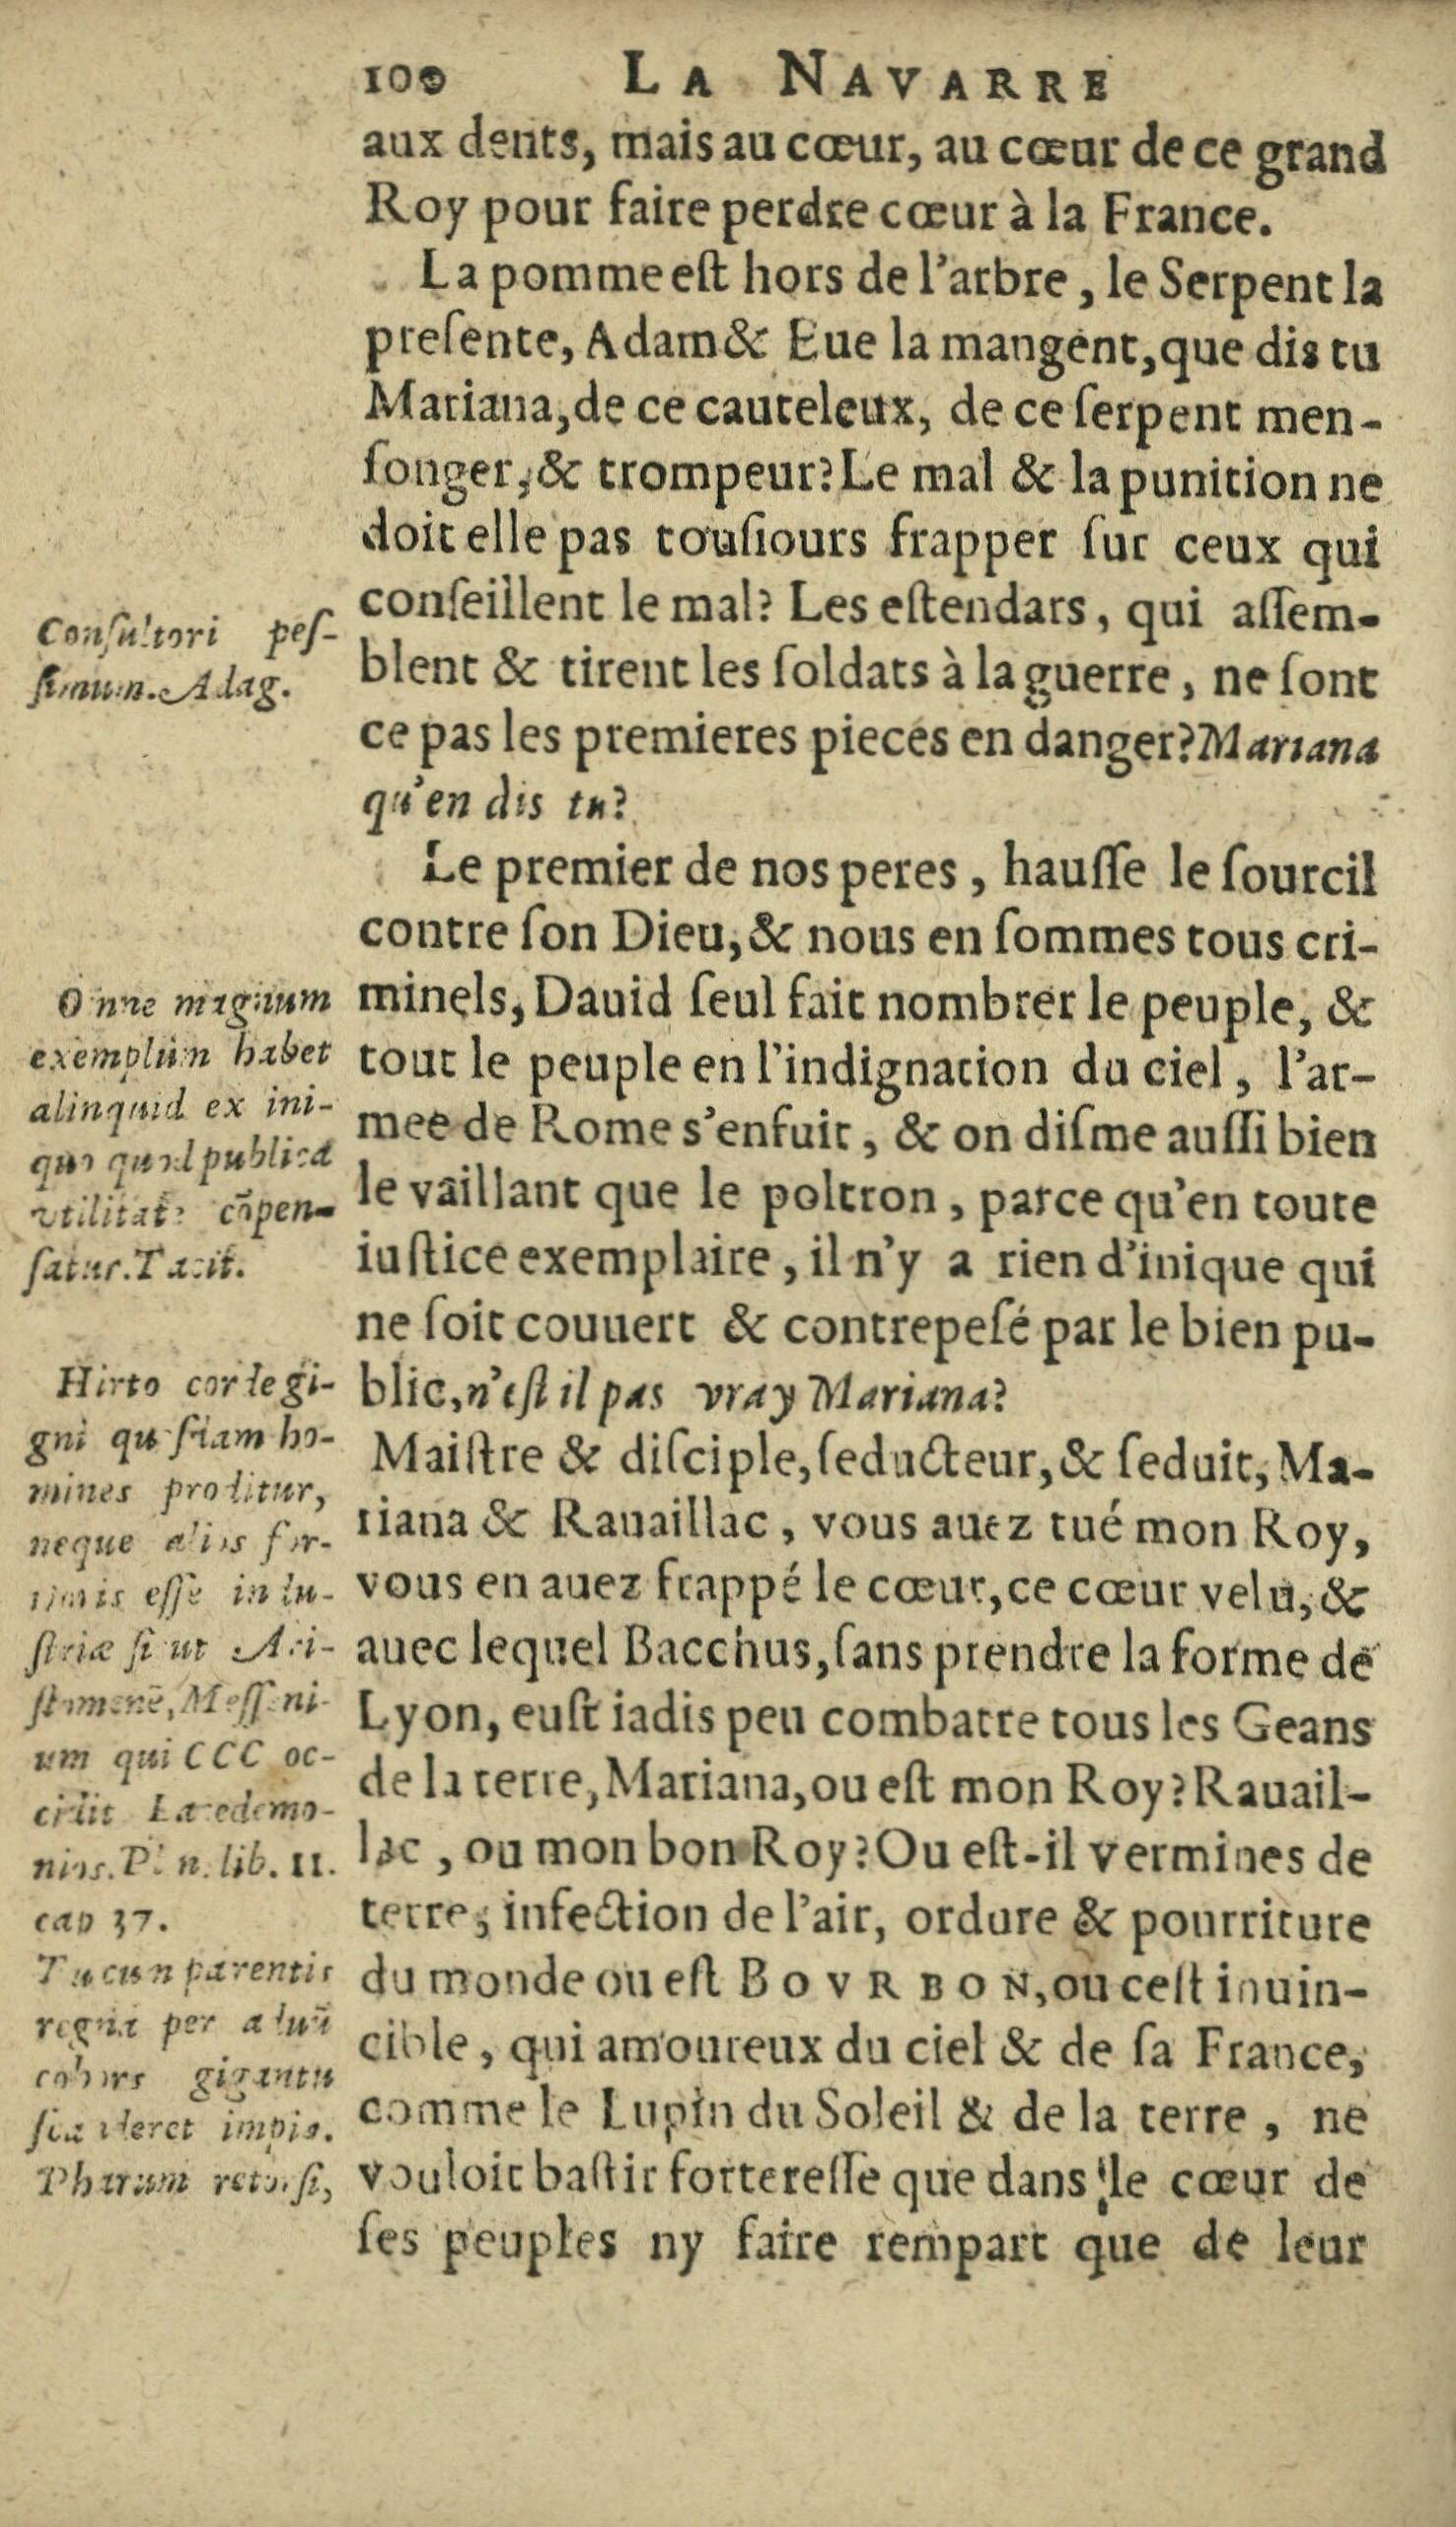 100 LA NAVARRE
aux dents, mais au cœur, au cœur de ce grand
Roy pour faire perdre cœur à la France.
La pomme eſt hors de l'arbre, le Serpent la
preſente, Adam & Eue la mangent, que dis tu
Mariana, de ce cauteleux, de ce ſerpent men-
ſonger, & trompeur? Le mal & la punition ne
doit elle pas touſiours frapper ſur ceux qui
conſeillent le mal? Les eſtendars, qui aſſem-
blent & tirent les ſoldats à la guerre, ne ſont
ce pas les premieres pieces en danger? Mariana
qu'en dis tu?
Le premier de nos peres, hauſſe le ſourcil
contre ſon Dieu, & nous en ſommes tous cri-
minels, Dauid ſeul fait nombrer le peuple, &
tout le peuple en l'indignation du ciel, l'ar-
mee de Rome s'enfuit, & on diſme auſſi bien
le vaillant que le poltron, parce qu'en toute
iuſtice exemplaire, il n'y a rien d'inique qui
ne ſoit couuert & contrepeſé par le bien pu-
blic, n'eſt il pas vray Mariana?
Maiſtre & diſciple, ſeducteur, & ſeduit, Ma-
riana & Rauaillac, vous auez tué mon Roy,
vous en auez frappé le cœur, ce cœur velu, &
auec lequel Bacchus, ſans prendre la forme de
Lyon, euſt iadis peu combatre tous les Geans
de la terre, Mariana, ou eſt mon Roy? Rauail-
lac, ou mon bon Roy? Ou eſt-il vermines de
terre, infection de l'air, ordure & pourriture
du monde ou eſt BOVRBON, ou ceſt inuin-
cible, qui amoureux du ciel & de ſa France,
comme le Lupin du Soleil & de la terre, ne
vouloit baſtir fortereſſe que dans le cœur de
ſes peuples ny faire rempart que de leur
Conſultori peſ-
ſimum. Adag.
Omne magnum
exemplum habet
alinquid ex ini-
quo quod publica
vtilitate cõpen-
ſatur. Tacit.
Hirto corde gi-
gni quoſdam ho-
mines proditur,
neque alios for-
tioris eſſe induſ-
ſtriæ ſicut Ari-
ſtomenẽ, Meſſeni-
um qui CCC oc-
cidit Lacedemo-
nios. Plin. lib. 11.
cap 37.
Tu cum parentis
regna per arduũ
cohors gigantũ
ſcanderet impia.
Rhœtum retorſi,